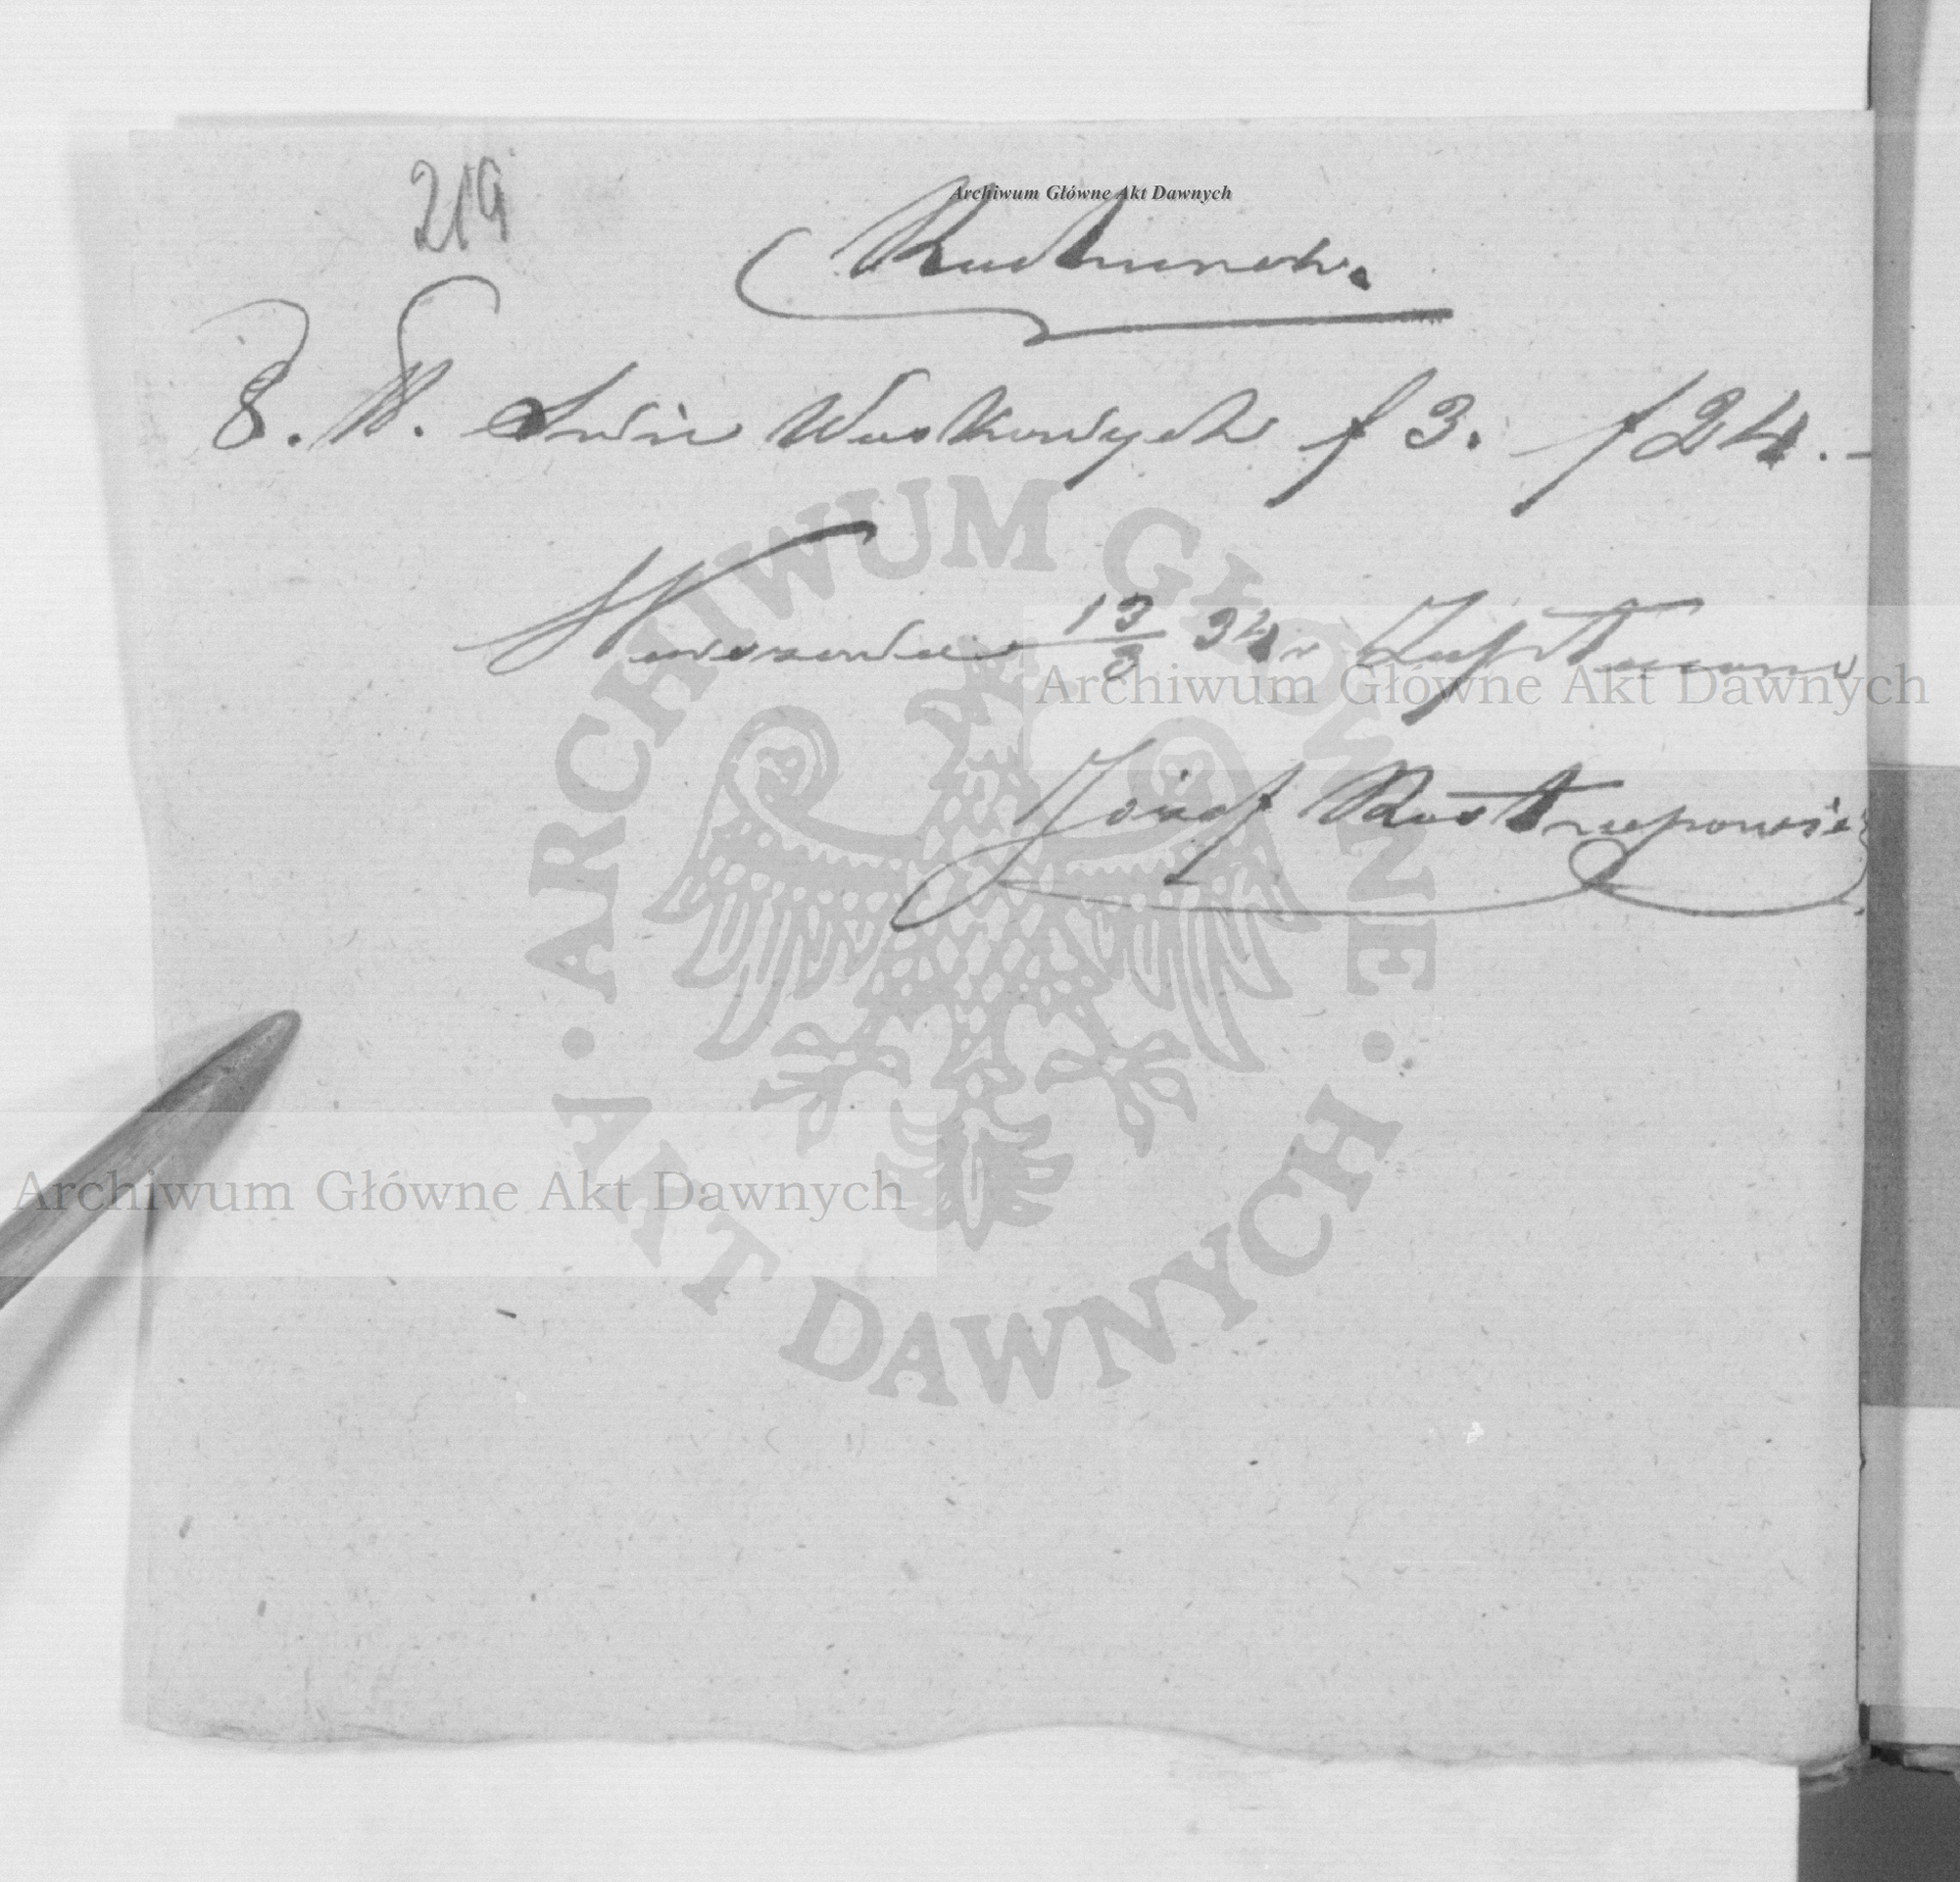 219
Archiwum Główne Akt Dawnych
Rachunek.
8. ₶. Swic Woskowych f 3. f 24.-
Warszawa 13/3 34 r Zapłacono
Archiwum Główne Akt Dawnych
Józef
ARCHIWUM GŁÓWNE
AKT DAWNYCH
Archiwum Główne Akt Dawnych